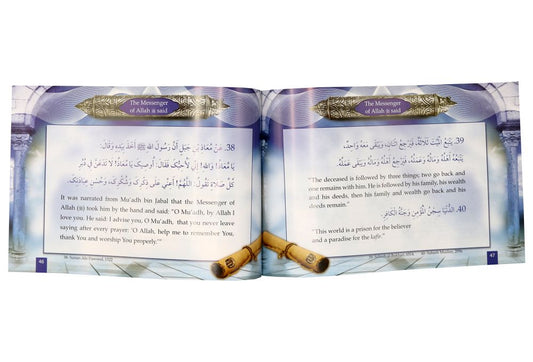 The Messenger
of Allah ﷺ said
38. عَنْ مُعَاذِ بْنِ جَبَلٍ أَنَّ رَسُولَ اللهِ ﷺ أَخَذَ بِيَدِهِ وَقَالَ:
يَا مُعَاذُ! وَاللهِ! إِنِّي لَأُحِبُّكَ فَقَالَ: أُوصِيكَ يَا مُعَاذُ! لَا تَدَعَنَّ فِي دُبُرِ
كُلِّ صَلَاةٍ تَقُولُ: اللَّهُمَّ! أَعِنِّي عَلَى ذِكْرِكَ وَشُكْرِكَ، وَحُسْنِ عِبَادَتِكَ.
It was narrated from Mu'adh bin Jabal that the Messenger of
Allah (ﷺ) took him by the hand and said: "O Mu'adh, by Allah I
love you. He said: I advise you, O Mu'adh, you not never leave
saying after every prayer: 'O Allah, help me to remember You,
thank You and worship You properly.'"
46
38. Sunan Abi Dawood, 1522
The Messenger
of Allah ﷺ said
39. يَتْبَعُ الْمَيِّتَ ثَلَاثَةٌ، فَيَرْجِعُ اثْنَانِ، وَيَبْقَى مَعَهُ وَاحِدٌ،
يَتْبَعُهُ أَهْلُهُ وَمَالُهُ وَعَمَلُهُ، فَيَرْجِعُ أَهْلُهُ وَمَالُهُ وَيَبْقَى عَمَلُهُ
"The deceased is followed by three things; two go back and
one remains with him. He is followed by his family, his wealth
and his deeds, then his family and wealth go back and his
deeds remain."
40. الدُّنْيَا سِجْنُ الْمُؤْمِنِ وَجَنَّةُ الْكَافِرِ.
"This world is a prison for the believer
and a paradise for the kafir."
47